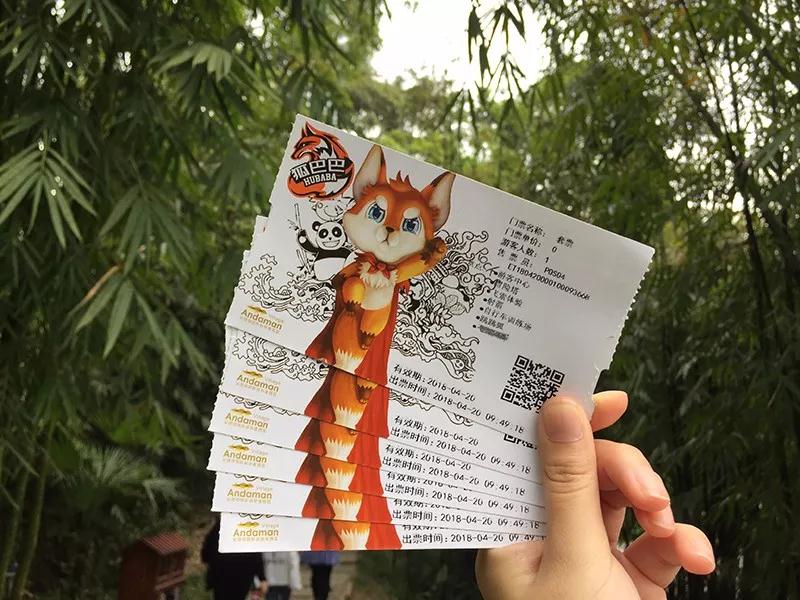 狐巴巴
HUBABA
门票名称: 套票
门票单价: 0
游客人数: 1
售 票 员: POS04
游客中心
射箭
自行车训练场
Village
Andaman
有效期:2018-04-20
出票时间:2018-04-20 09:49:18
Village
Andaman
有效期:2018-04-20
出票时间:2018-04-20 09:49:18
Village
Andaman
有效期:2018-04-20
出票时间:2018-04-20 09:49:18
Village
Andaman
有效期:2018-04-20
出票时间:2018-04-20 09:49:18
Village
Andaman
有效期:2018-04-20
出票时间:2018-04-20 09:49:18
Village
Andaman
有效期:2018-04-20
出票时间:2018-04-20 09:49:18